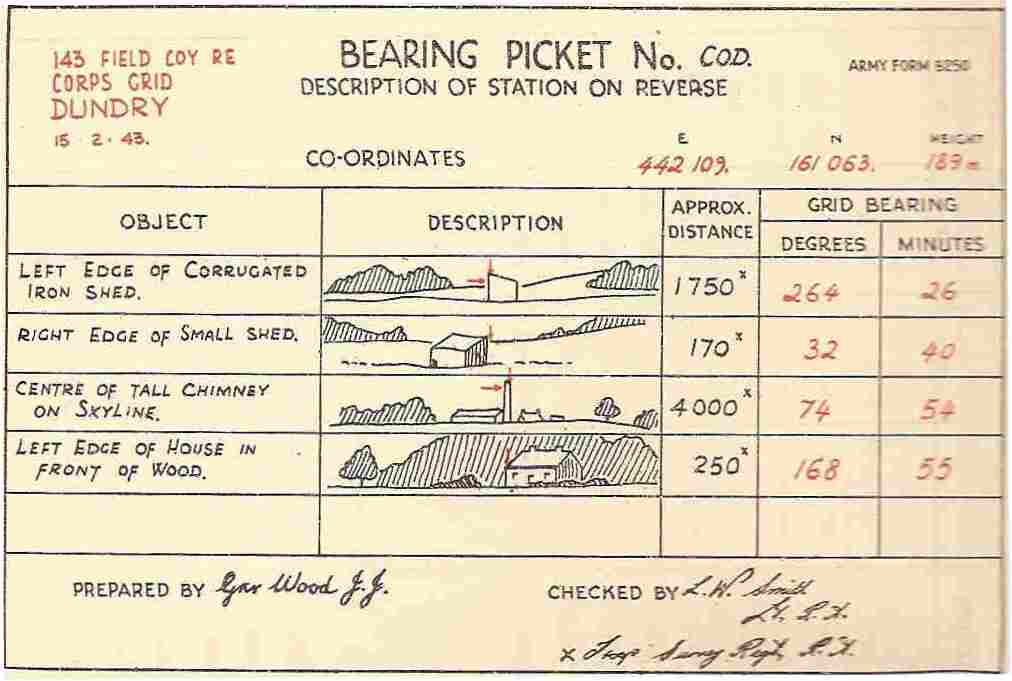 143 FIELD COY RE
CORPS GRID
DUNDRY
15 · 2 · 43.
BEARING PICKET No. COD.
DESCRIPTION OF STATION ON REVERSE
ARMY FORM B250
CO-ORDINATES
E N HEIGHT
442 109. 161 063. 189 m
OBJECT DESCRIPTION APPROX. DISTANCE GRID BEARING
DEGREES MINUTES
LEFT EDGE OF CORRUGATED
IRON SHED.
1750ˣ 264 26
RIGHT EDGE OF SMALL SHED. 170ˣ 32 40
CENTRE OF TALL CHIMNEY
ON SKYLINE.
4000ˣ 74 54
LEFT EDGE OF HOUSE IN
FRONT OF WOOD.
250ˣ 168 55
PREPARED BY Gnr Wood J.J.
CHECKED BY L.W. Smith
Lt. R.A.
Survey Regt. R.A.